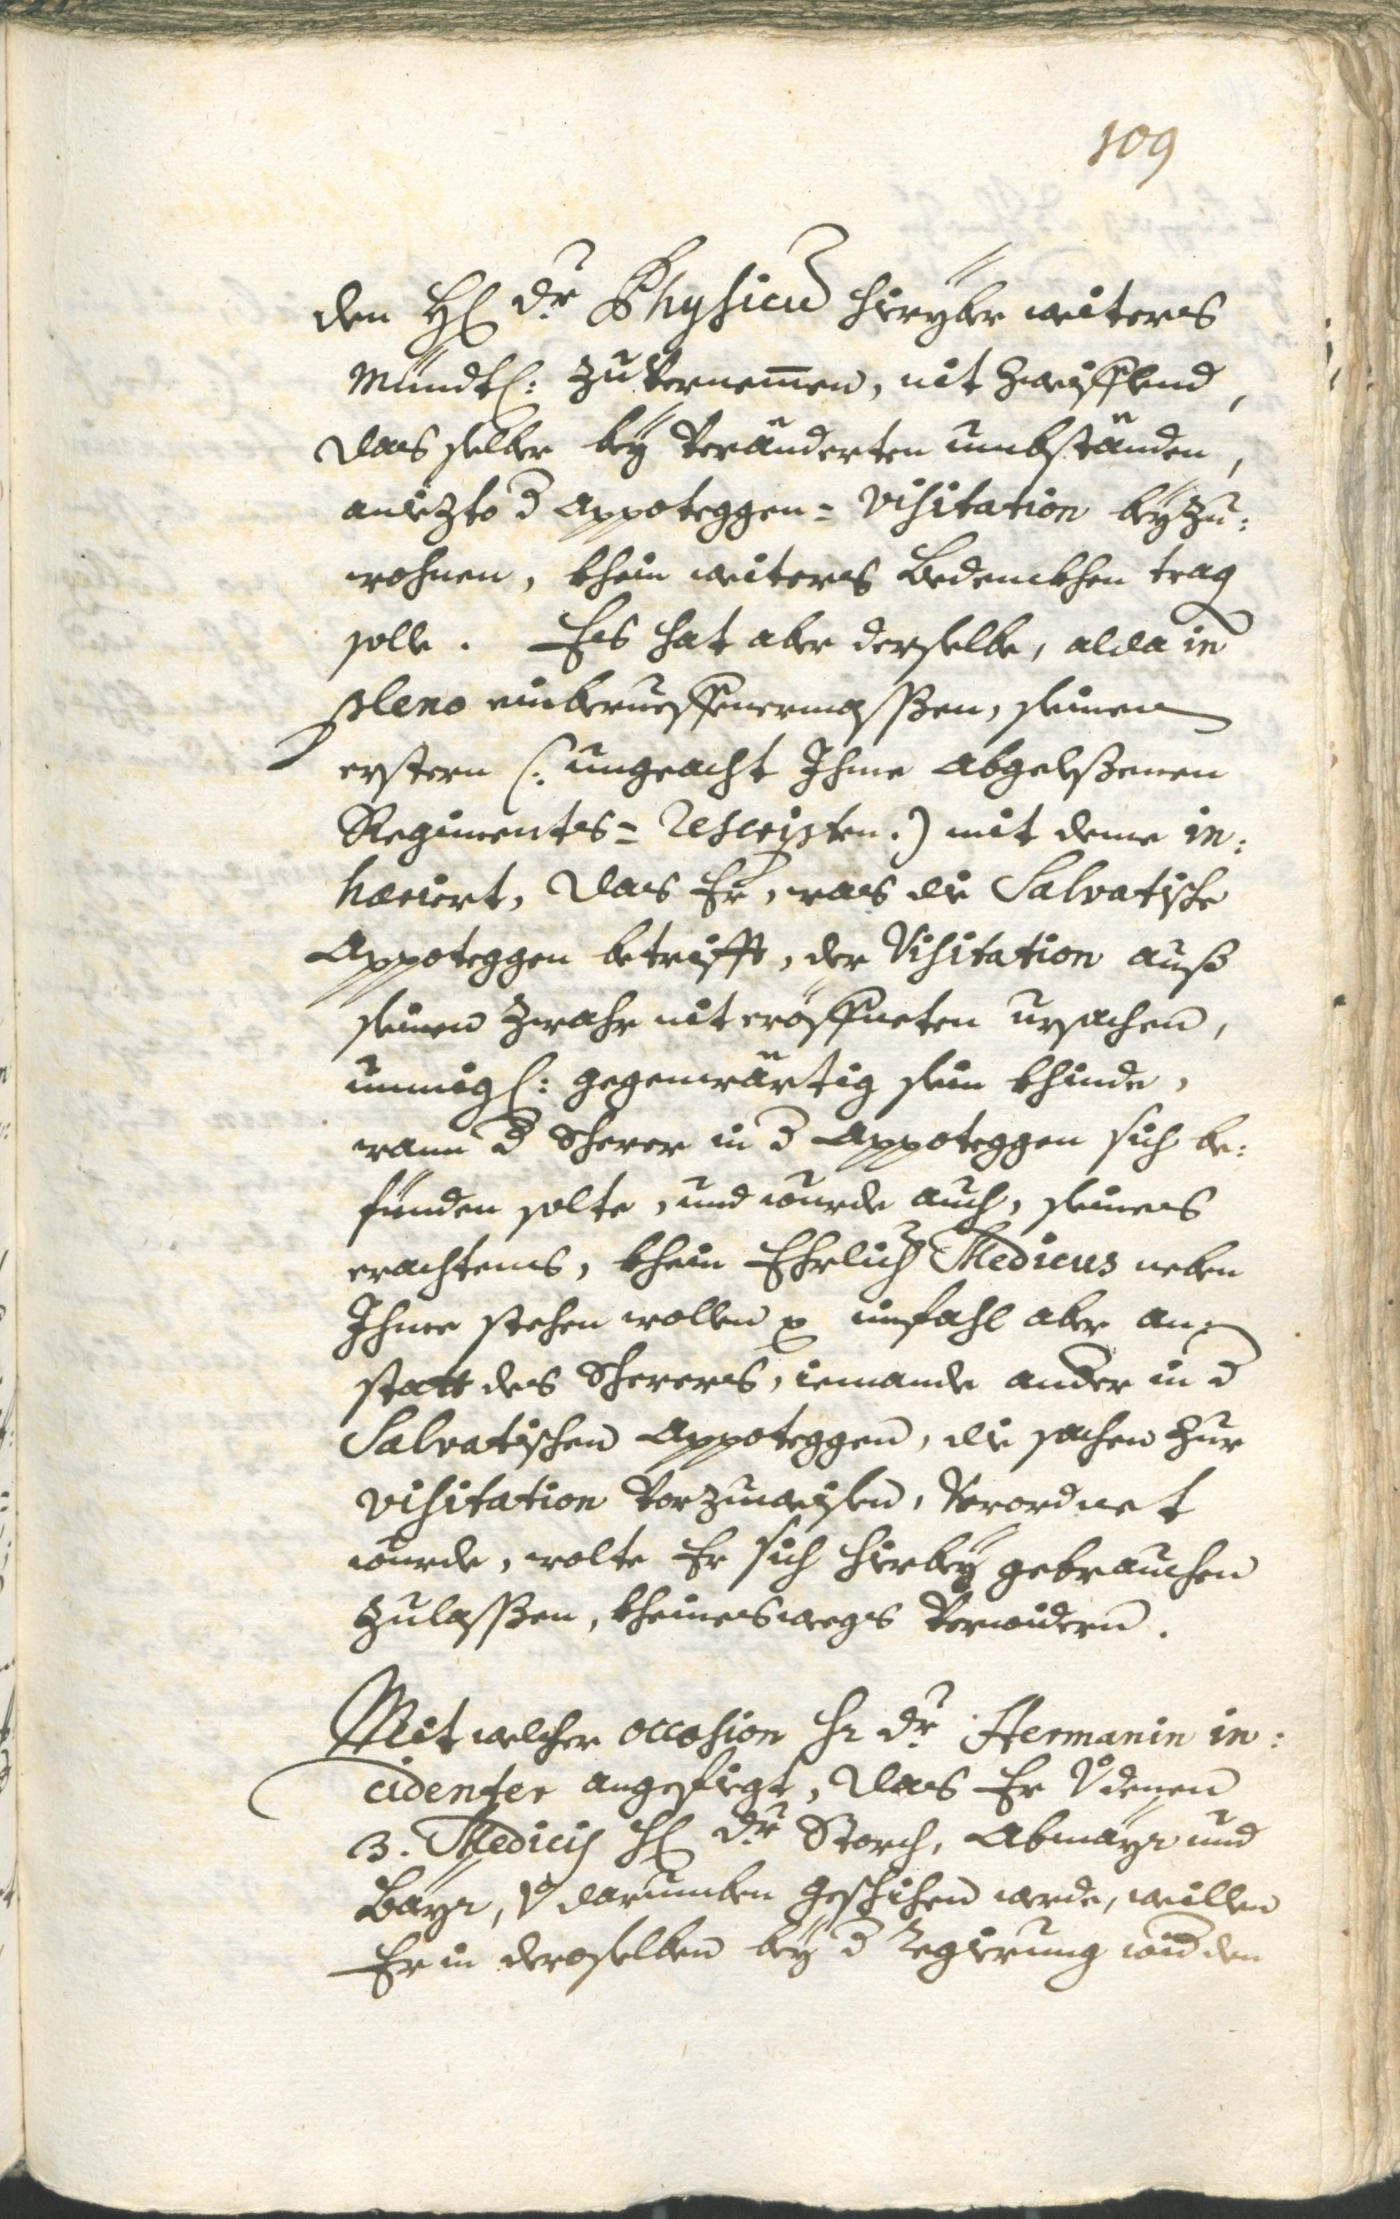 109
den H: Dr Physicu hieryber weiters
Mündtl: zuvernemmen, nit zweifflend,
das selber bey veränderten umbständen,
aniezto d Appoteggen= Visitation beyzu:
wohnen, khein weiters Bedenckhen trag
solle. Es hat aber derselbe, alda in
pleno einberueffenermassen, seinen
erstern (: ungeacht Ihme abgelessenen
Regiments= Rescripten :) mit deme in:
hæriert, das Er, was die Salvatische
Appoteggen betrifft, der Visitation auß
seinen zwahr nit eröffneten ursachen,
unmigl: gegenwärtig sein khinde,
wann d Scherer in d Appoteggen sich be:
fünden solte, und wurde auch, seines
erachtens, khein Ehrlich Medicus neben
Ihme stehen wollen im fahl aber an
statt des Scherers, iemande ander in d
Salvatischen Appoteggen, die sachen zur
Visitation vorzuweisen, verordnet
wurde, wolte Er sich hierbey gebrauchen
zulassen, kheineswegs verwidern.
Mit welcher occasion Hr Dr Hermanin in:
cidenter angefiegt, das Er denen
3. Medicis H: Dr Storch, Abmayr und
Bayr, darumben geschihen werde, weillen
Er in deroselben bey d Regierung wid den